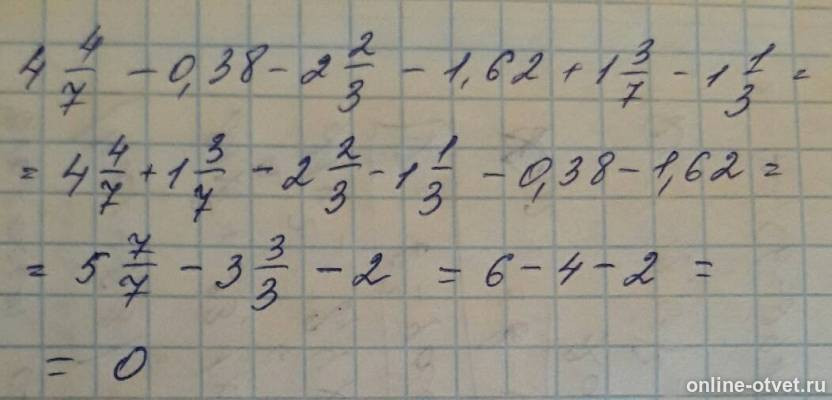 4 4/7 - 0,38 - 2 2/3 - 1,62 + 1 3/7 - 1 1/3 =
= 4 4/7 + 1 3/7 - 2 2/3 - 1 1/3 - 0,38 - 1,62 =
= 5 7/7 - 3 3/3 - 2 = 6 - 4 - 2 =
= 0
online-otvet.ru